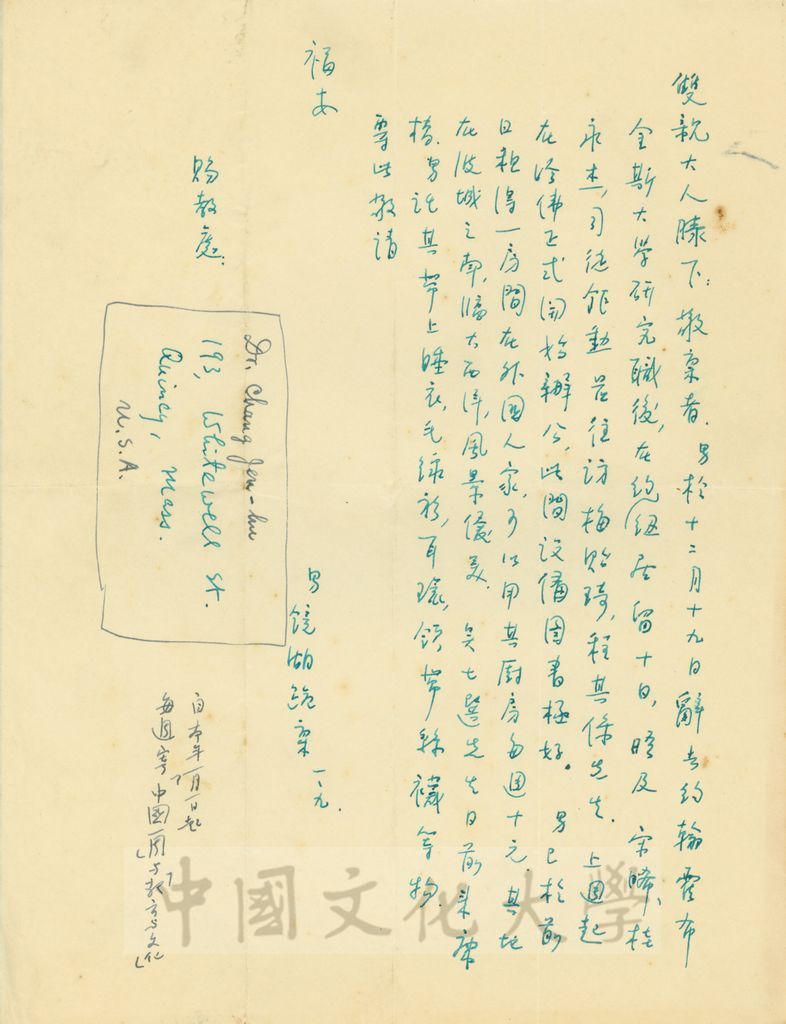 雙親大人膝下：敬稟者．男於十二月十九日辭去約翰霍布
金斯大學研究職後，在紐約居留十日，晤及宋晞、桂
永杰，司徒鉅勳呂往訪梅貽琦，程其保先生．上週起
在哈佛正式開始辦公，此間設備圖書極好。男已於前
日租得一房間在外國人家，可以用其廚房每週十元．其地
在波城之南，臨大西洋，風景優美．吳士選先生日前來
橋．男託其帶上睡衣，毛線衫，耳環，領帶絲襪等物．
專此敬請
福安
男鏡湖跪稟 一．九．
賜教處：
Dr. Chang Jen-hu
193, Whitewell St.
Quincy, Mass.
U.S.A.
自本年一月一日起
每週寄「中國一周」「教育與文化」
中國文化大學